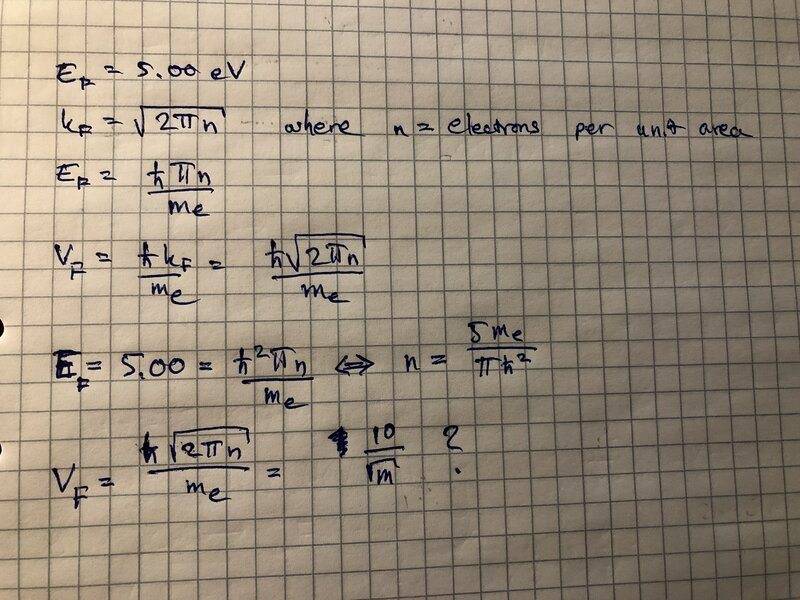 E_F = 5.00 eV
k_F = √(2πn) where n = electrons per unit area
E_F = ħπn/m_e
V_F = ħk_F/m_e = ħ√(2πn)/m_e
E_F = 5.00 = ħ²πn/m_e ⇔ n = 5m_e/πħ²
V_F = ħ√(2πn)/m_e = 10/√m ?